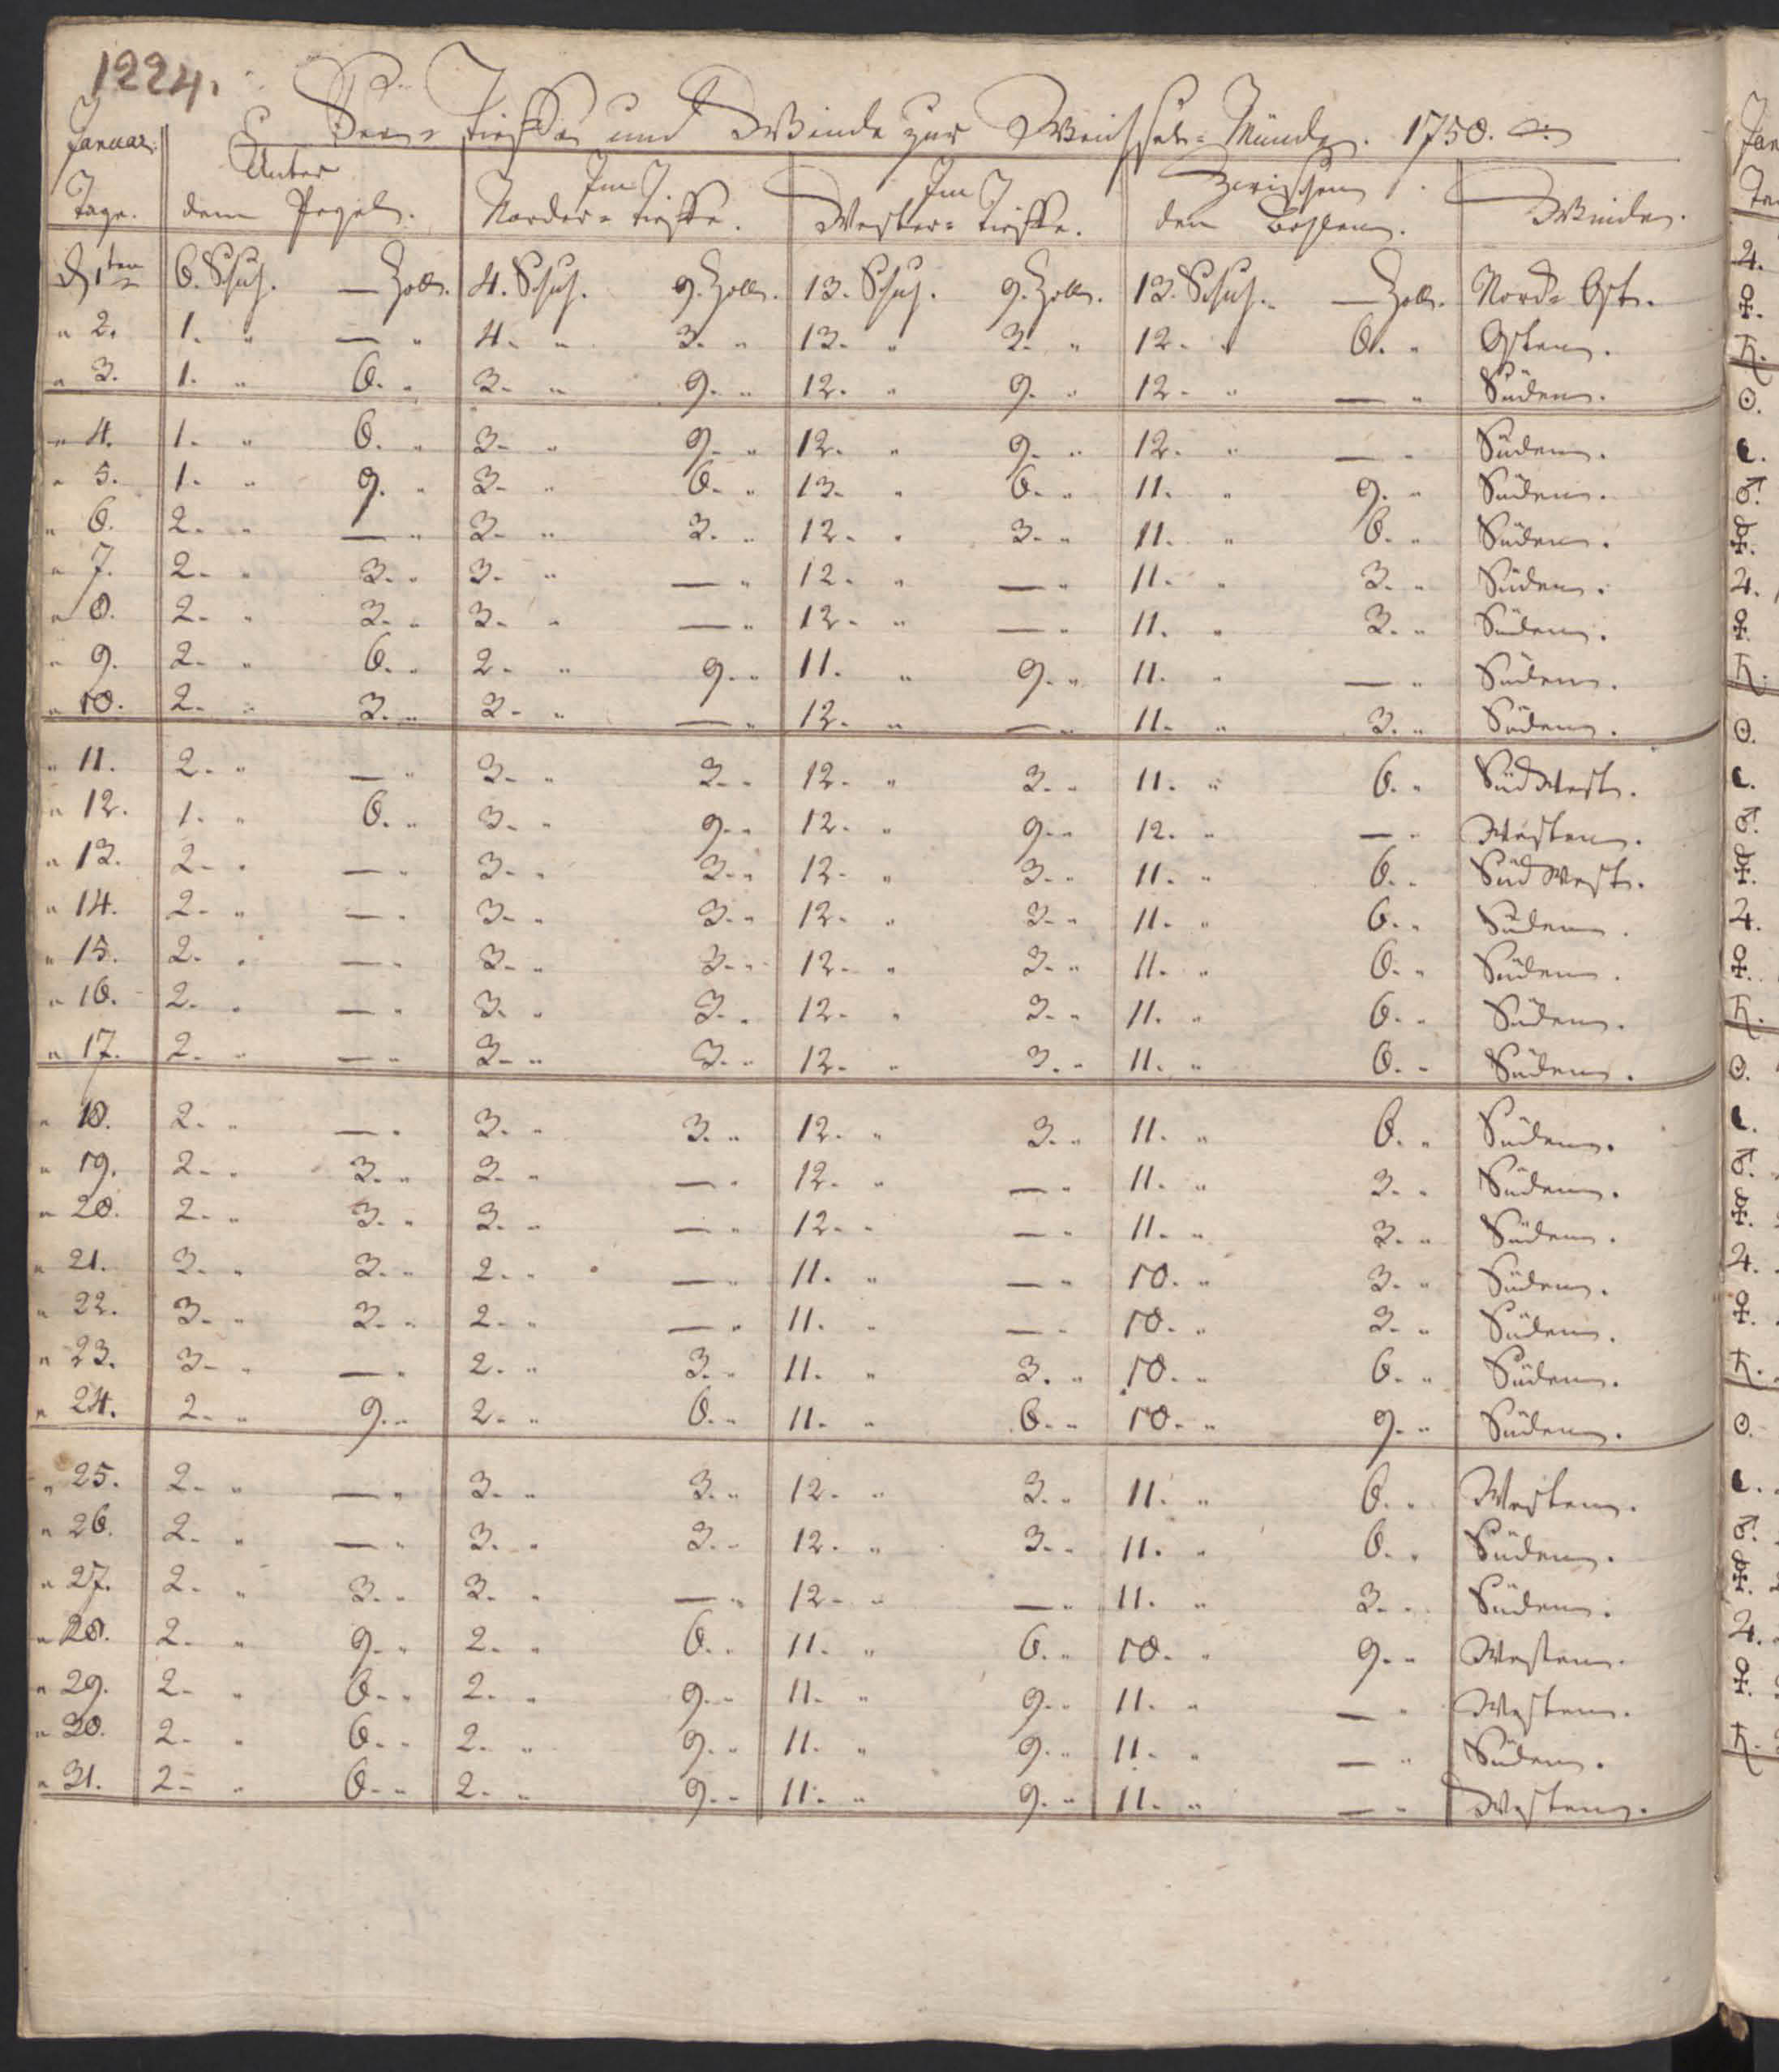 1224.
See-Tieffe und Winde zur Weichsel-Münde. 1758.
Januar. Unter Im Im Zwischen
Tage. dem Pegel. Norder-Tieffe. Wester-Tieffe. den Bohlen. Winde.
D 1ten 6. Schuh. — Zoll. 4. Schuh. 9. Zoll. 13. Schuh. 9. Zoll. 13. Schuh. — Zoll. Nord-Ost.
" 2. 1. " — " 4. " 3. " 13. " 3. " 12. " 6. " Osten.
" 3. 1. " 6. " 3. " 9. " 12. " 9. " 12. " — " Süden.
" 4. 1. " 6. " 3. " 9. " 12. " 9. " 12. " — " Süden.
" 5. 1. " 9. " 3. " 6. " 13. " 6. " 11. " 9. " Süden.
" 6. 2. " — " 3. " 3. " 12. " 3. " 11. " 6. " Süden.
" 7. 2. " 3. " 3. " — " 12. " — " 11. " 3. " Süden.
" 8. 2. " 3. " 3. " — " 12. " — " 11. " 3. " Süden.
" 9. 2. " 6. " 2. " 9. " 11. " 9. " 11. " — " Süden.
" 10. 2. " 3. " 3. " — " 12. " — " 11. " 3. " Süden.
" 11. 2. " — " 3. " 3. " 12. " 3. " 11. " 6. " SüdWest.
" 12. 1. " 6. " 3. " 9. " 12. " 9. " 12. " — " Westen.
" 13. 2. " — " 3. " 3. " 12. " 3. " 11. " 6. " SüdWest.
" 14. 2. " — " 3. " 3. " 12. " 3. " 11. " 6. " Süden.
" 15. 2. " — " 3. " 3. " 12. " 3. " 11. " 6. " Süden.
" 16. 2. " — " 3. " 3. " 12. " 3. " 11. " 6. " Süden.
" 17. 2. " — " 3. " 3. " 12. " 3. " 11. " 6. " Süden.
" 18. 2. " — " 3. " 3. " 12. " 3. " 11. " 6. " Süden.
" 19. 2. " 3. " 3. " — " 12. " — " 11. " 3. " Süden.
" 20. 2. " 3. " 3. " — " 12. " — " 11. " 3. " Süden.
" 21. 3. " 3. " 2. " — " 11. " — " 10. " 3. " Süden.
" 22. 3. " 3. " 2. " — " 11. " — " 10. " 3. " Süden.
" 23. 3. " — " 2. " 3. " 11. " 3. " 10. " 6. " Süden.
" 24. 2. " 9. " 2. " 6. " 11. " 6. " 10. " 9. " Süden.
" 25. 2. " — " 3. " 3. " 12. " 3. " 11. " 6. " Westen.
" 26. 2. " — " 3. " 3. " 12. " 3. " 11. " 6. " Süden.
" 27. 2. " 3. " 3. " — " 12. " — " 11. " 3. " Süden.
" 28. 2. " 9. " 2. " 6. " 11. " 6. " 10. " 9. " Westen.
" 29. 2. " 6. " 2. " 9. " 11. " 9. " 11. " — " Westen.
" 30. 2. " 6. " 2. " 9. " 11. " 9. " 11. " — " Süden.
" 31. 2. " 6. " 2. " 9. " 11. " 9. " 11. " — " Westen.